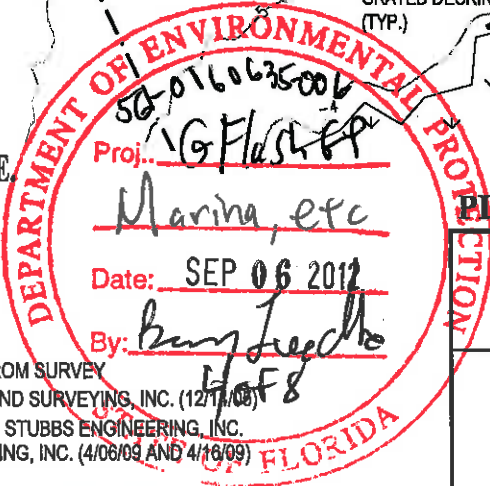 GRATED DECKIN
(TYP.)
DEPARTMENT OF ENVIRONMENTAL PROTECTION
STATE OF FLORIDA
Proj..
Marina, etc
Date: SEP 06 2012
By:
4 of 8
E.
PL
ROM SURVEY
ND SURVEYING, INC. (12/14/05)
STUBBS ENGINEERING, INC.
ING, INC. (4/06/09 AND 4/16/09)